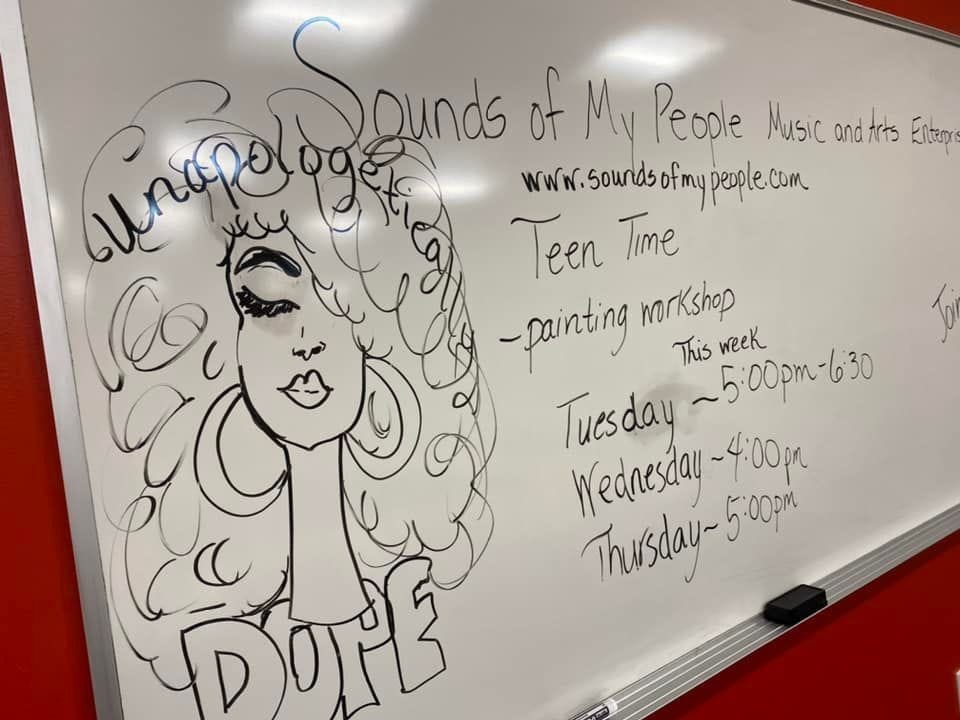 Unapologetically
DOPE
Sounds of My People Music and Arts
www.soundsofmypeople.com
Teen Time
-painting workshop
This week
Tuesday ~ 5:00pm-6:30
Wednesday ~ 4:00pm
Thursday ~ 5:00pm